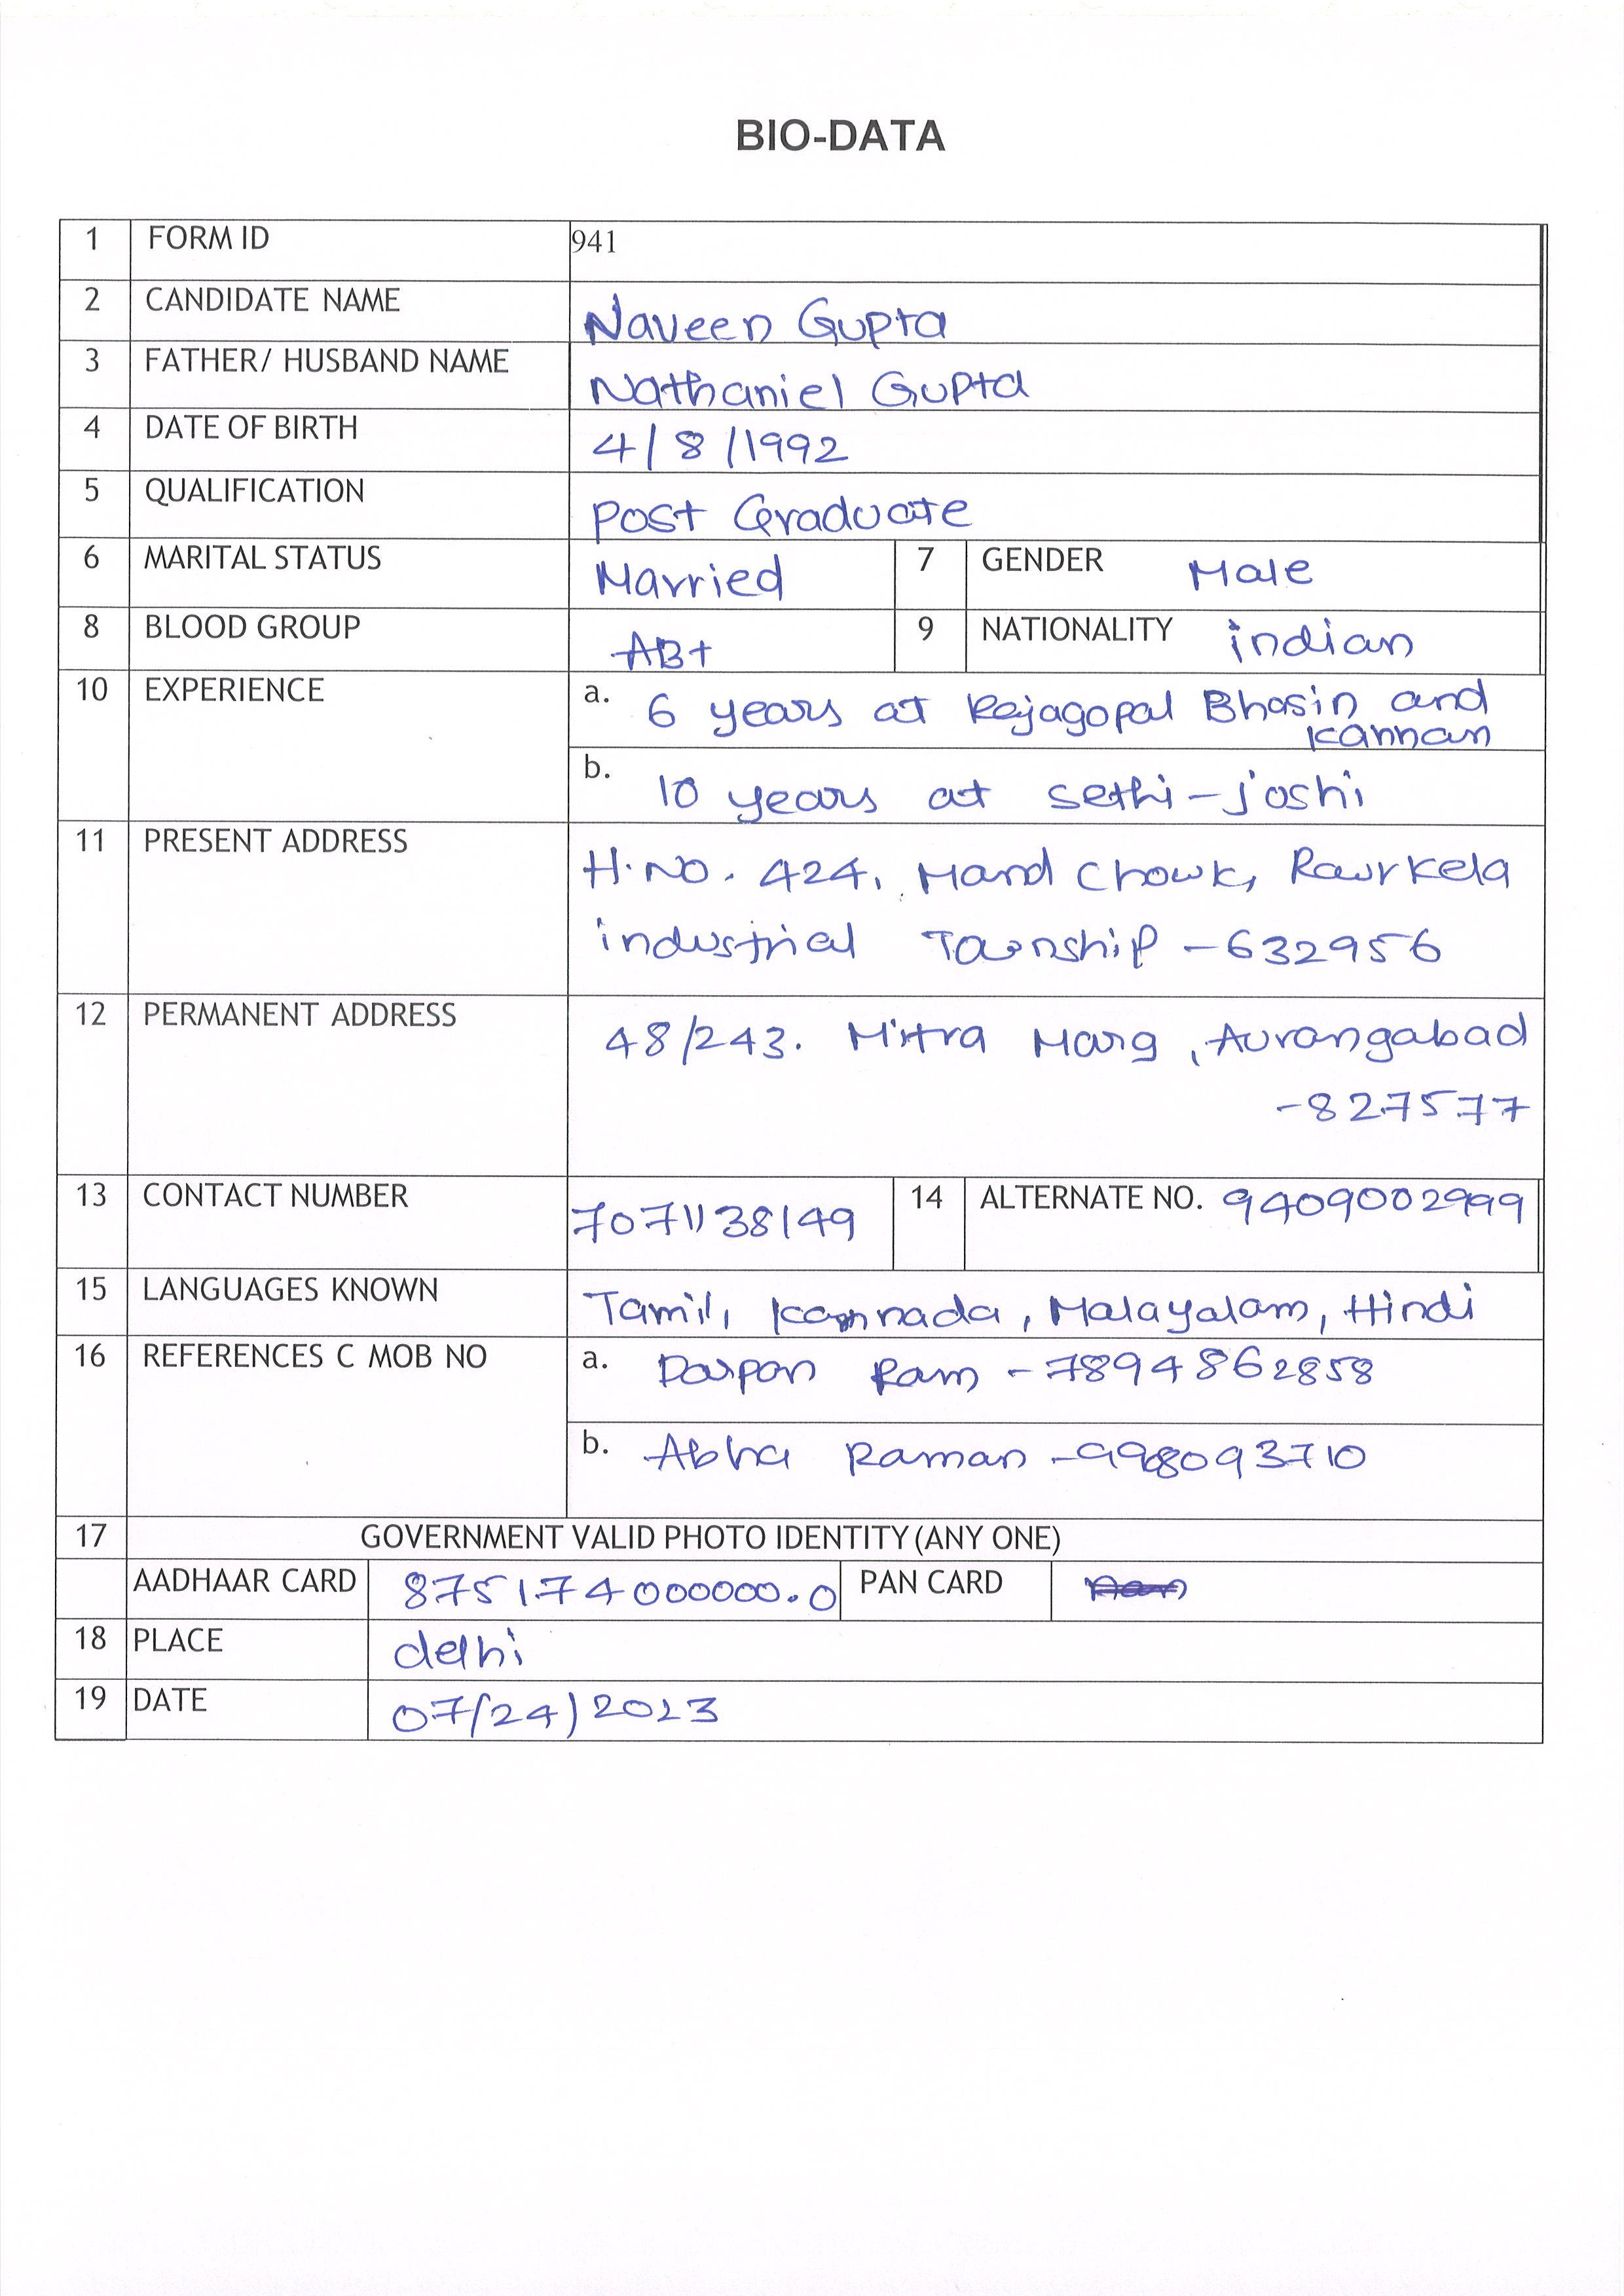 BIO-DATA
1 FORM ID 941
2 CANDIDATE NAME Naveen Gupta
3 FATHER/ HUSBAND NAME Nathaniel Gupta
4 DATE OF BIRTH 4/8/1992
5 QUALIFICATION Post Graduate
6 MARITAL STATUS Married 7 GENDER Male
8 BLOOD GROUP AB+ 9 NATIONALITY indian
10 EXPERIENCE a. 6 years at Rajagopal Bhasin and
Kannan
b. 10 years at Sethi-Joshi
11 PRESENT ADDRESS H.NO. 424, Mand Chowk, Raurkela
industrial Township -632956
12 PERMANENT ADDRESS 48/243. Mitra Marg, Aurangabad
-827577
13 CONTACT NUMBER 7071138149 14 ALTERNATE NO. 9409002999
15 LANGUAGES KNOWN Tamil, Kannada, Malayalam, Hindi
16 REFERENCES C MOB NO a. Darpan Ram - 7894862858
b. Abha Raman -998093710
17 GOVERNMENT VALID PHOTO IDENTITY (ANY ONE)
AADHAAR CARD 875174000000.0 PAN CARD
18 PLACE delhi
19 DATE 07/24/2023